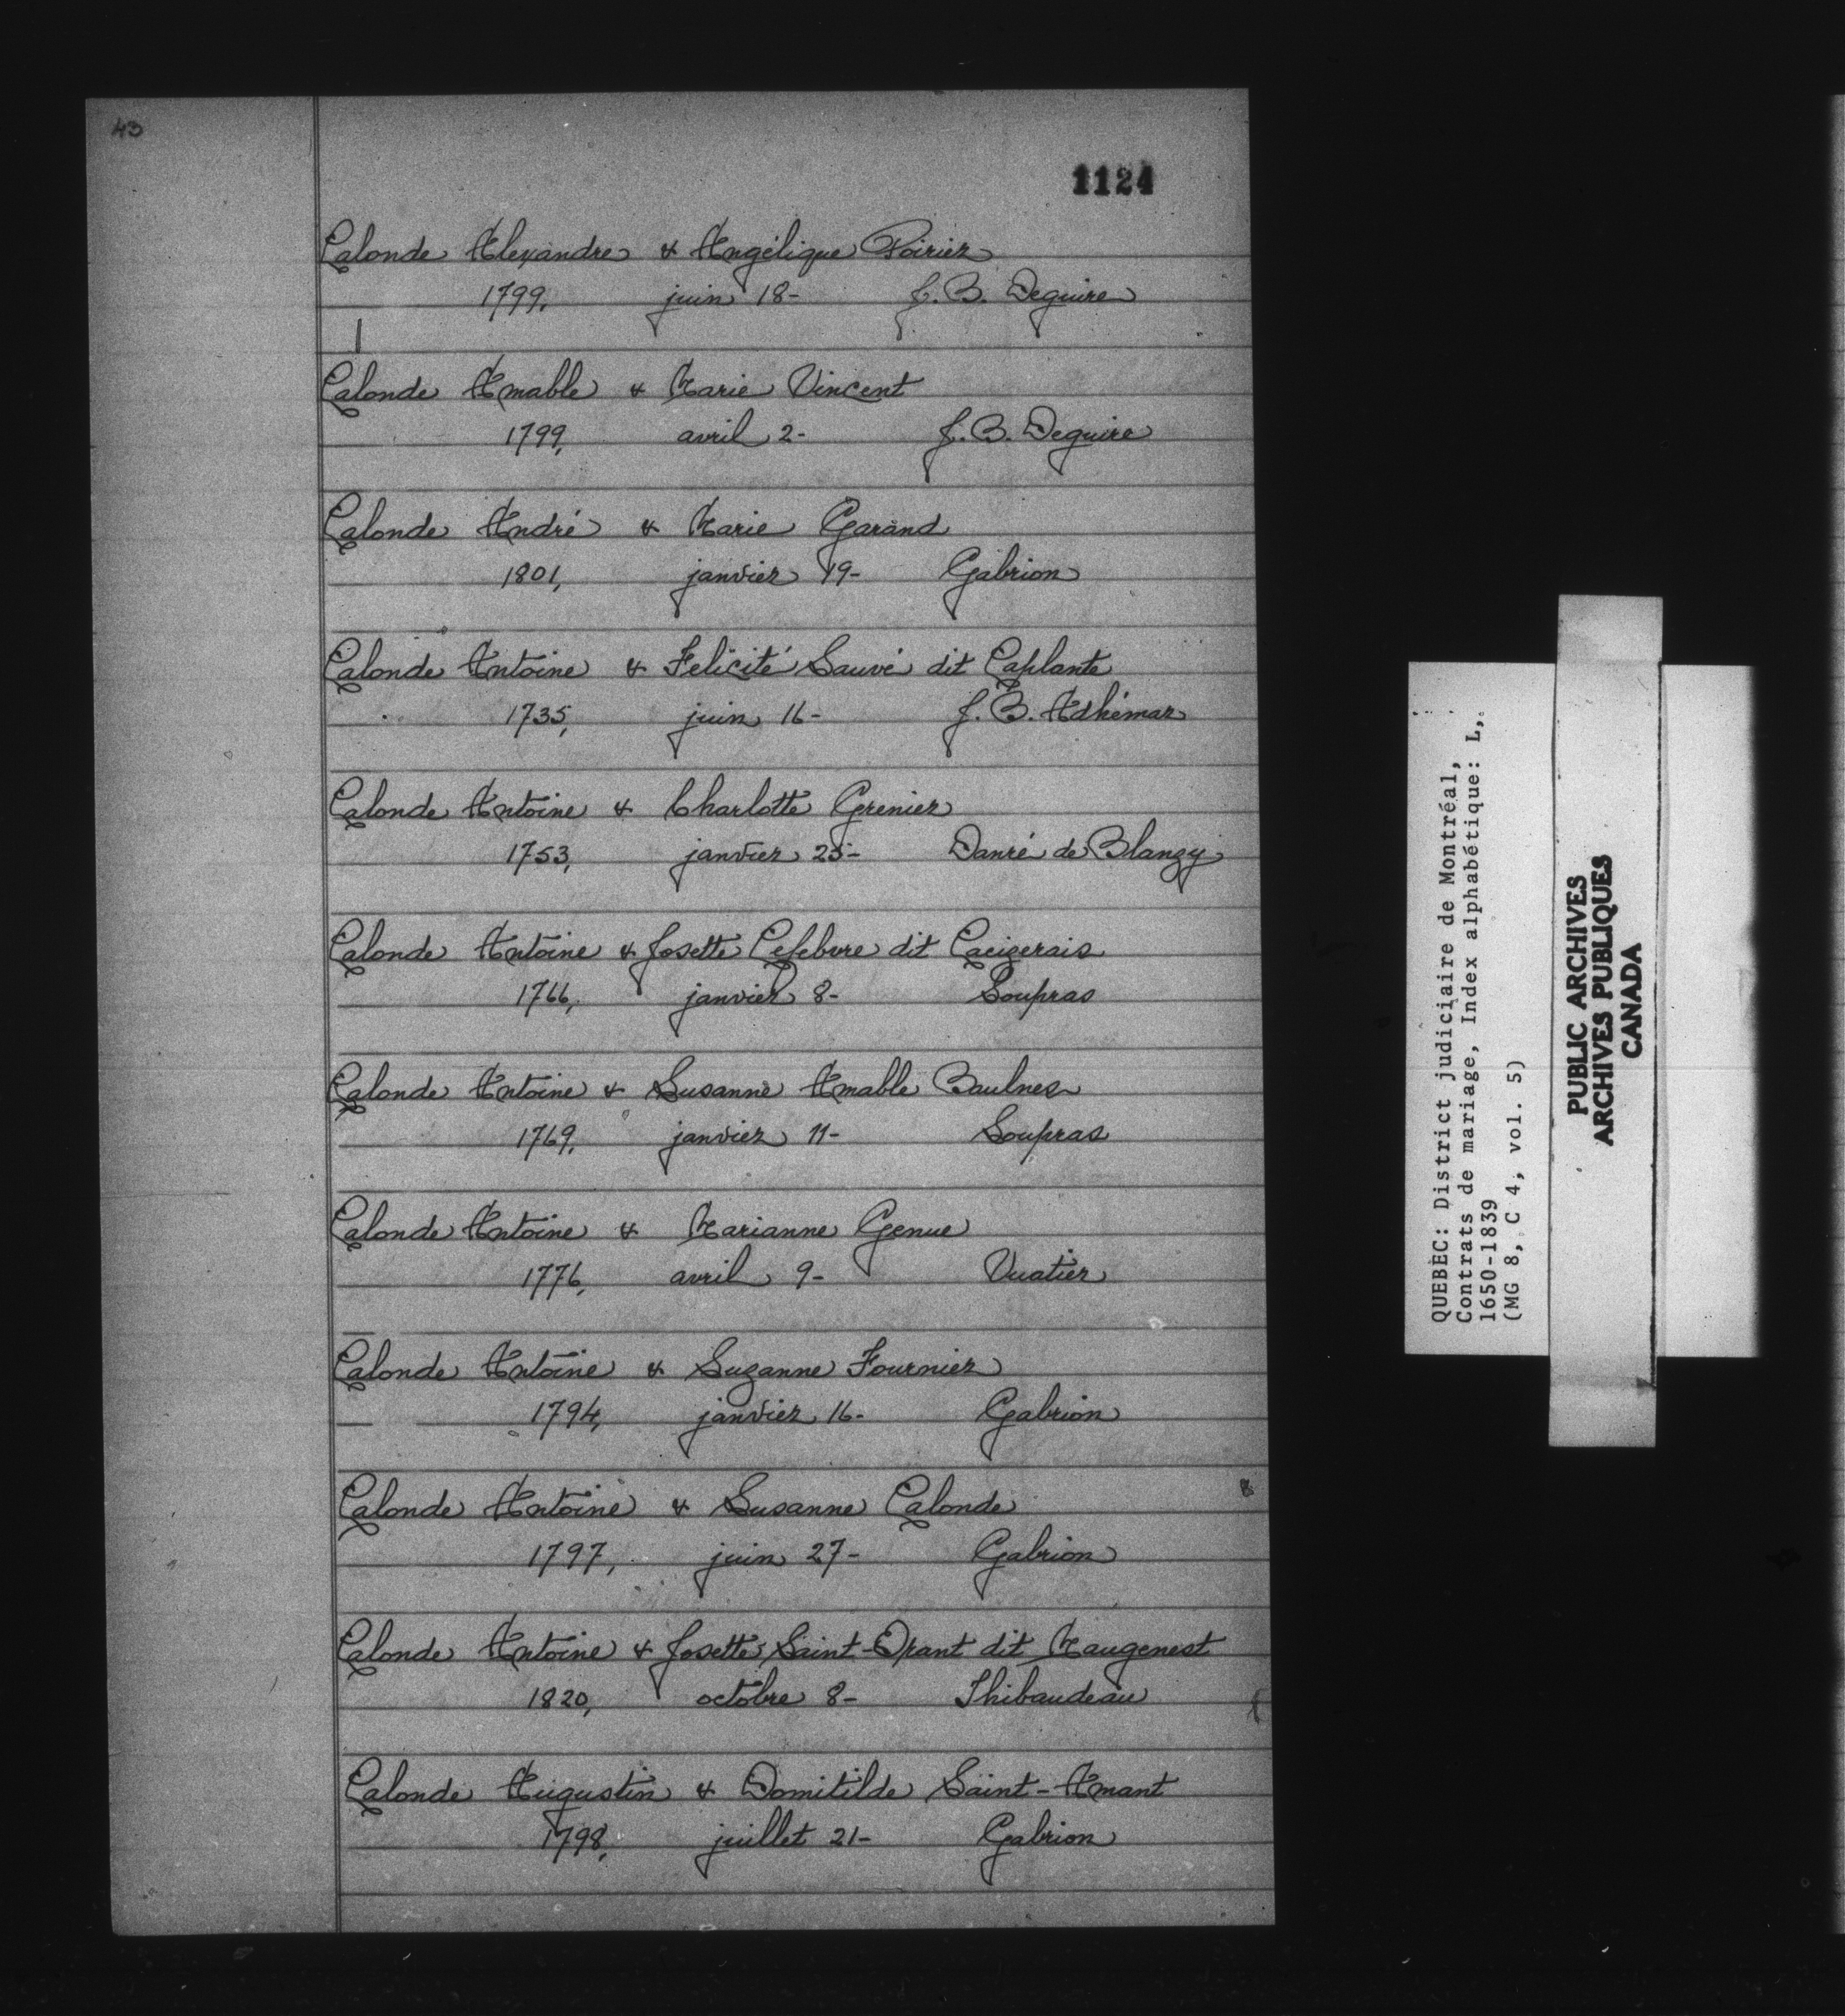 43
1124
Lalonde Alexandre & Angélique Poirier
1799, juin 18- J. B. Deguire
Lalonde Amable & Marie Vincent
1799, avril 2- J. B. Deguire
Lalonde André & Marie Garand
1801, janvier 19- Gabrion
Lalonde Antoine & Felicité Sauvé dit Laplante
1735, juin 16- J. B. Adhémar
Lalonde Antoine & Charlotte Grenier
1753, janvier 25- Danré de Blanzy
Lalonde Antoine & Josette Lefebvre dit Lacizerais
1766, janvier 8- Soupras
Lalonde Antoine & Susanne Amable Baulnes
1769, janvier 11- Soupras
Lalonde Antoine & Marianne Genue
1776, avril 9- Vuatier
Lalonde Antoine & Suzanne Fournier
1794, janvier 16- Gabrion
Lalonde Antoine & Susanne Lalonde
1797, juin 27- Gabrion
Lalonde Antoine & Josette Saint-Orant dit Maugenest
1820, octobre 8- Thibaudeau
Lalonde Augustin & Domitilde Saint-Amant
1798, juillet 21- Gabrion
QUEBEC: District judiciaire de Montréal,
Contrats de mariage, Index alphabétique: L,
1650-1839
(MG 8, C 4, vol. 5)
PUBLIC ARCHIVES
ARCHIVES PUBLIQUES
CANADA